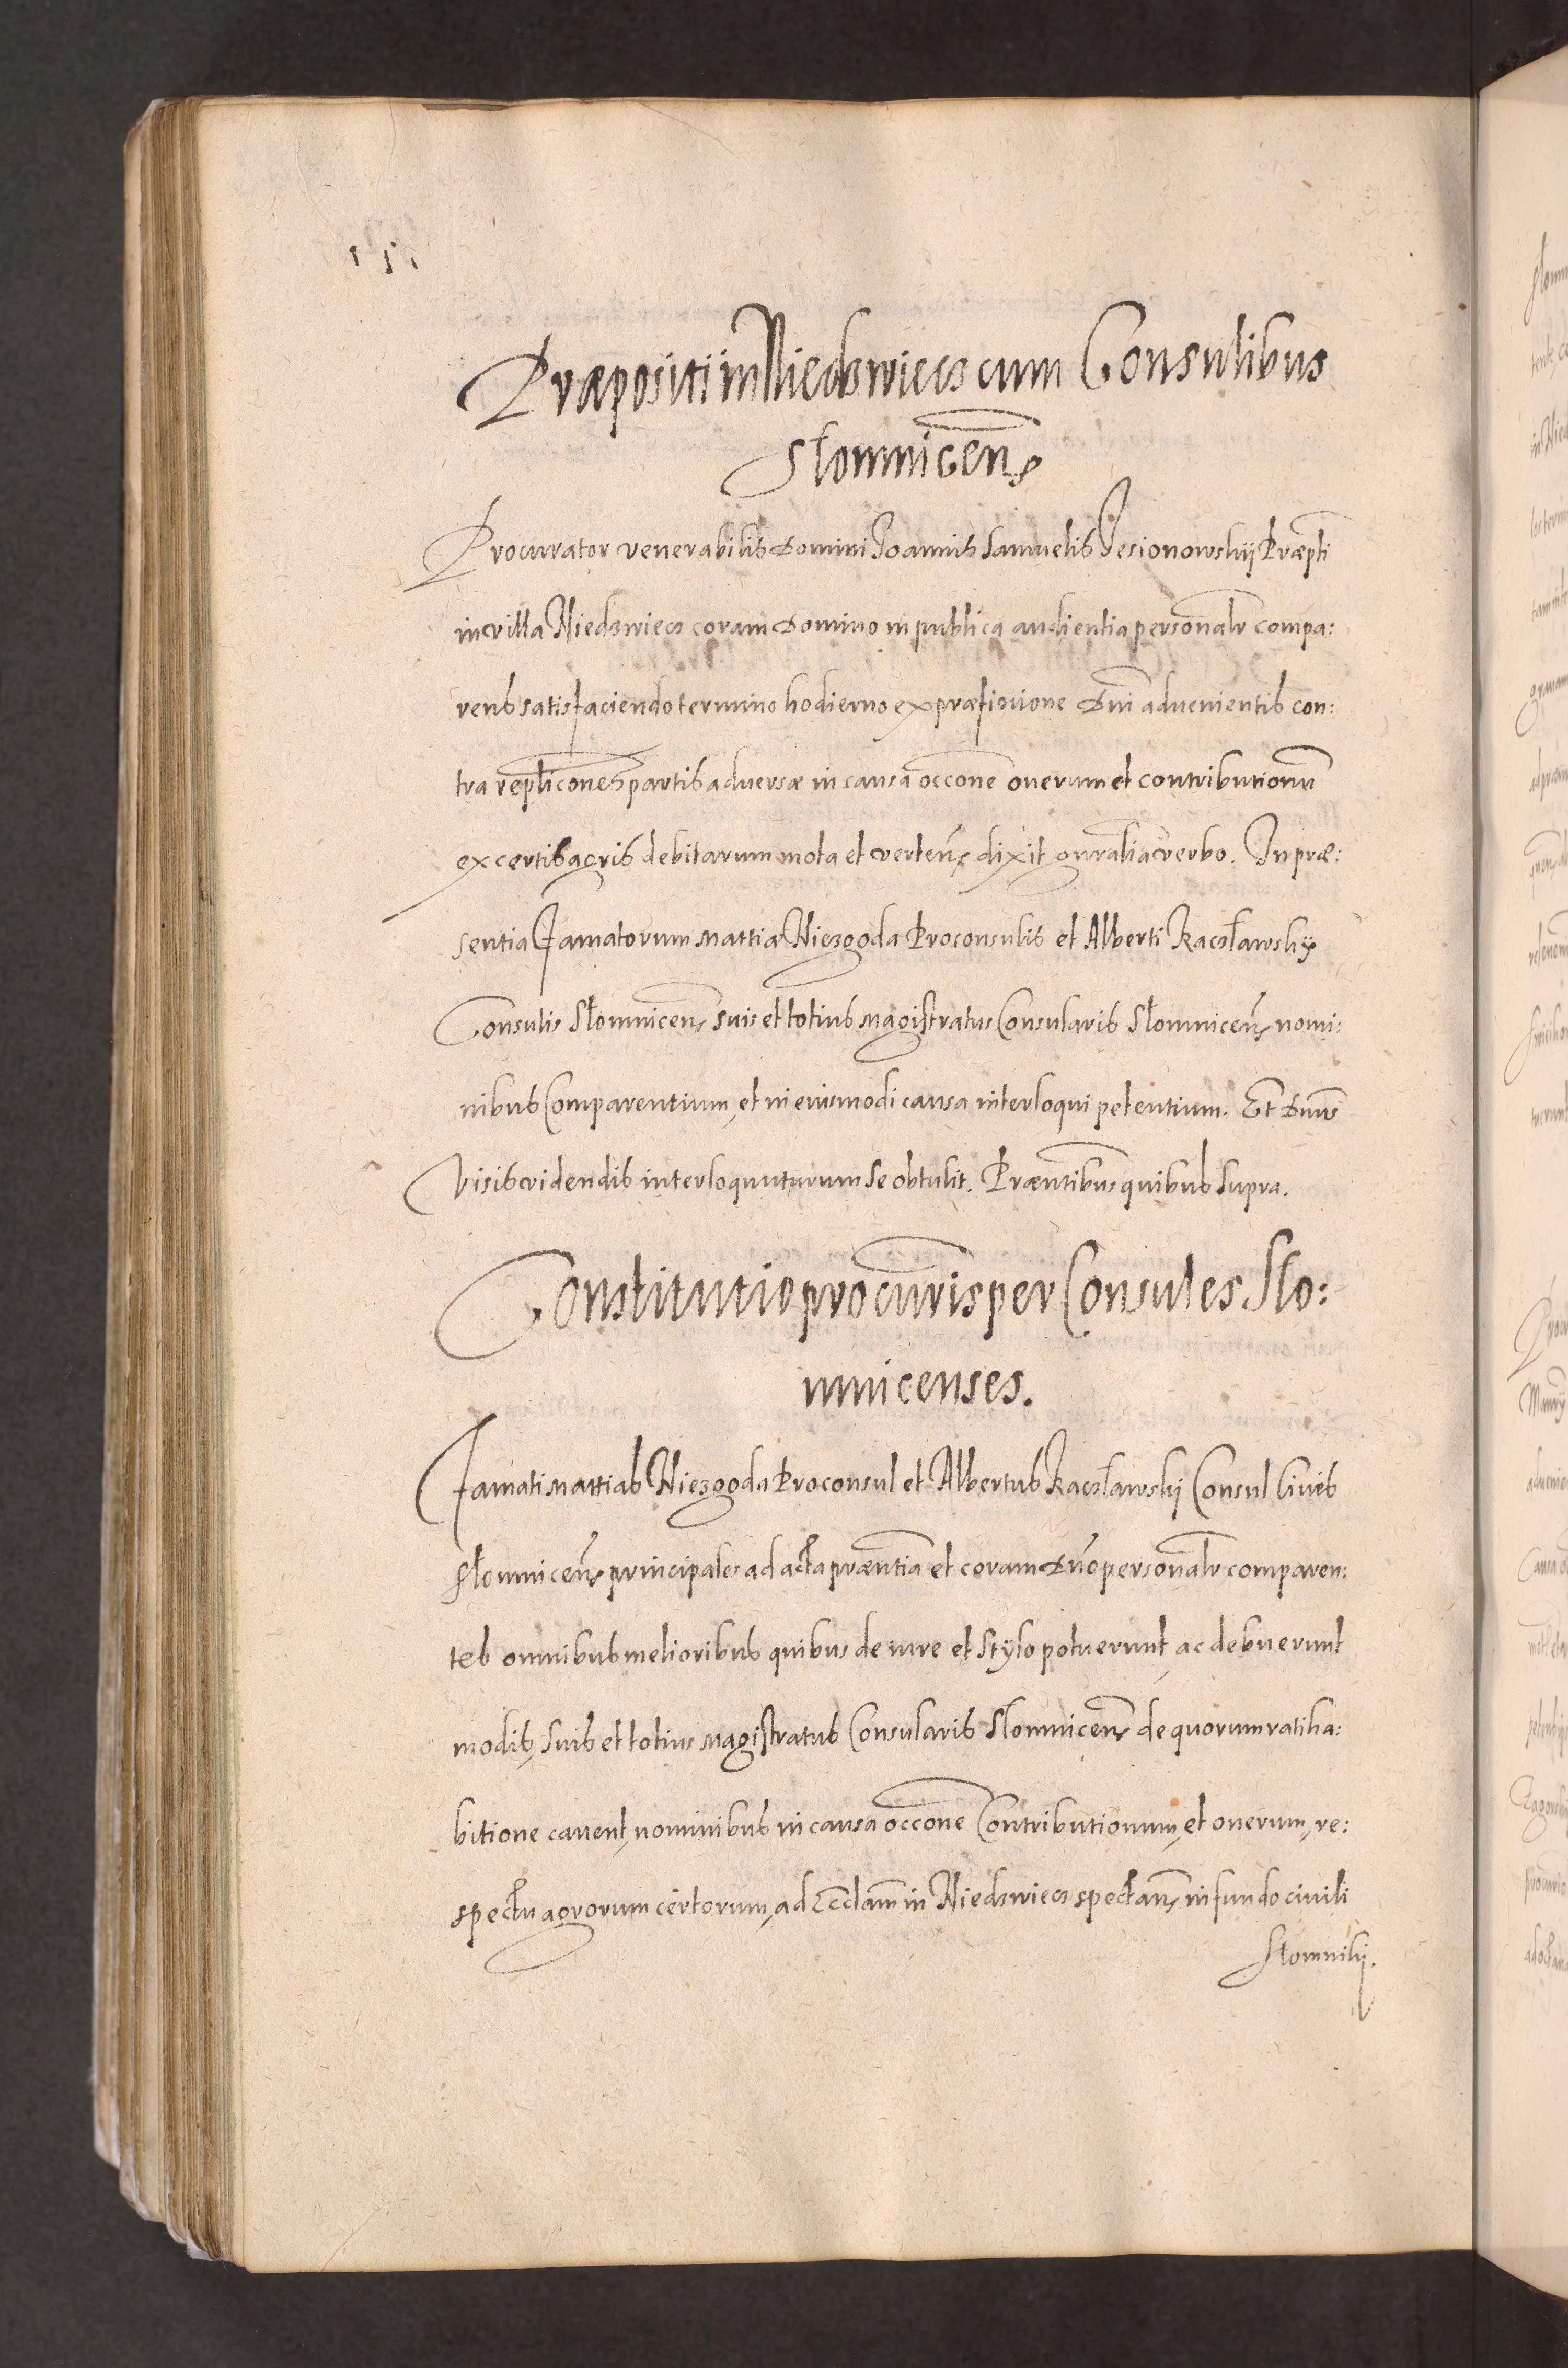 Præpositi in Niedzwiecz cum Consulibus
Słomnicens
Procurator venerabilis Domini Joannis Samuelis Jesionowskij Præpti
in villa Niedzwiecz coram Domino in publica audientia personalr compa:
rens satisfaciendo termino hodierno ex præfixione Dni aduenientis con:
tra replicones partis aduersæ in causa occone onerum et contributionum
ex certis agris debitarum mota et verten, dixit gnralia verbo. In præ:
sentia Famatorum Mattiæ Niezgoda Proconsulis et Alberti Kaczławskij
Consulis Słomnicens suis et totius Magistratus Consularis Słomnicens nomi:
nibus Comparentium, et in eiusmodi causa interloqui petentium. Et Dnus
Visis videndis interloquuturum se obtulit. Præntibus quibus supra.
Constitutio procuris per Consules Slo:
mnicenses.
Famati Mattias Niezgoda Proconsul et Albertus Kaczławskij Consul Ciues
Słomnicens principales ad acta præntia et coram Dno personalr comparen:
tes omnibus melioribus quibus de iure et stylo potuerunt, ac debuerunt
modis, suis et totius Magistratus Consularis Słomnicens de quorum ratiha:
bitione cauent, nominibus in causa occone Contributionum, et onerum, re:
spectu agrorum certorum, ad Ecclam in Niedzwiecz spectans, in fundo ciuili
Słomnikij.